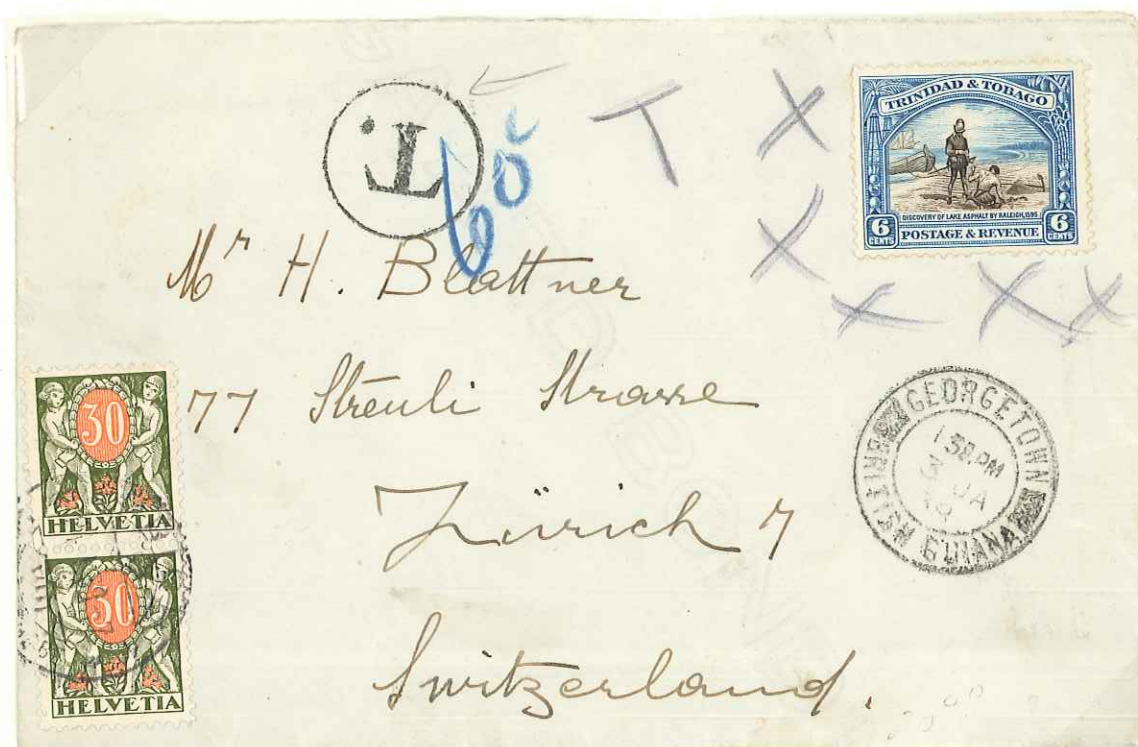 T.
60c
T X
X
X X X
TRINIDAD & TOBAGO
DISCOVERY OF LAKE ASPHALT BY RALEIGH, 1595
6 CENTS POSTAGE & REVENUE 6 CENTS
Mr H. Blattner
77 Streuli Strasse
Zürich 7
Switzerland.
GEORGETOWN
BRITISH GUIANA
30
HELVETIA
30
HELVETIA